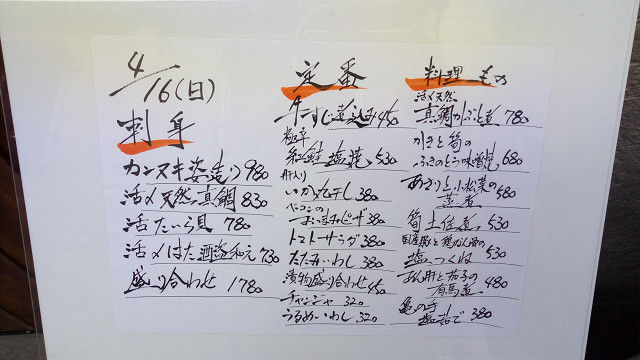 4/16(日)
刺身
カンヌキ姿造り 980
活〆天然真鯛 830
活たいら貝 780
活〆はた酒盗和え 730
盛り合わせ 1780
定番
牛すじ煮込み 450
極辛
紅鮭塩焼 530
肝入り
いか丸干し 380
ベーコンの
おつまみピザ 380
トマトサラダ 380
たたみいわし 380
漬物盛り合わせ 450
チャンジャ 320
うるめいわし 320
料理もの
活〆天然
真鯛かぶと煮 780
かきと筍の
ふきのとう味噌焼 680
あさりと小松菜の
蒸煮 580
筍土佐煮 530
国産豚と鶏なん骨の
塩つくね 530
あん肝と茄子の
有馬煮 480
亀の手
塩茹で 380